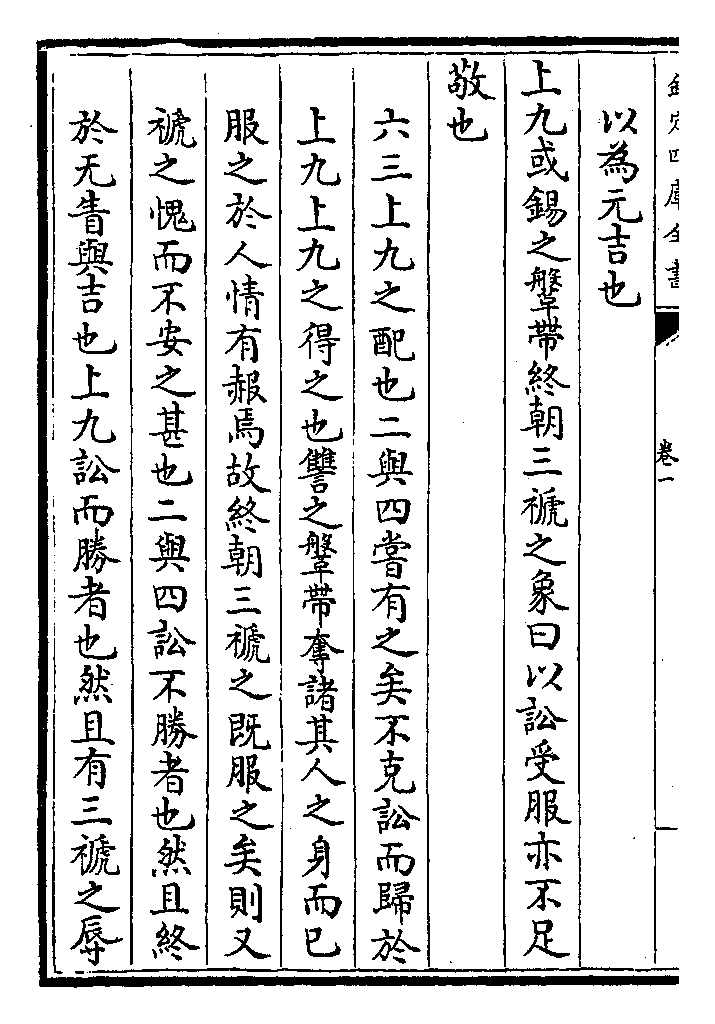 欽定四庫全書
卷一
以為元吉也
上九或錫之鞶帶終朝三褫之象曰以訟受服亦不足
敬也
六三上九之配也二與四嘗有之矣不克訟而歸於
上九上九之得之也譬之鞶帶奪諸其人之身而已
服之於人情有赧焉故終朝三褫之既服之矣則又
褫之愧而不安之甚也二與四訟不勝者也然且終
於无眚與吉也上九訟而勝者也然且有三褫之辱